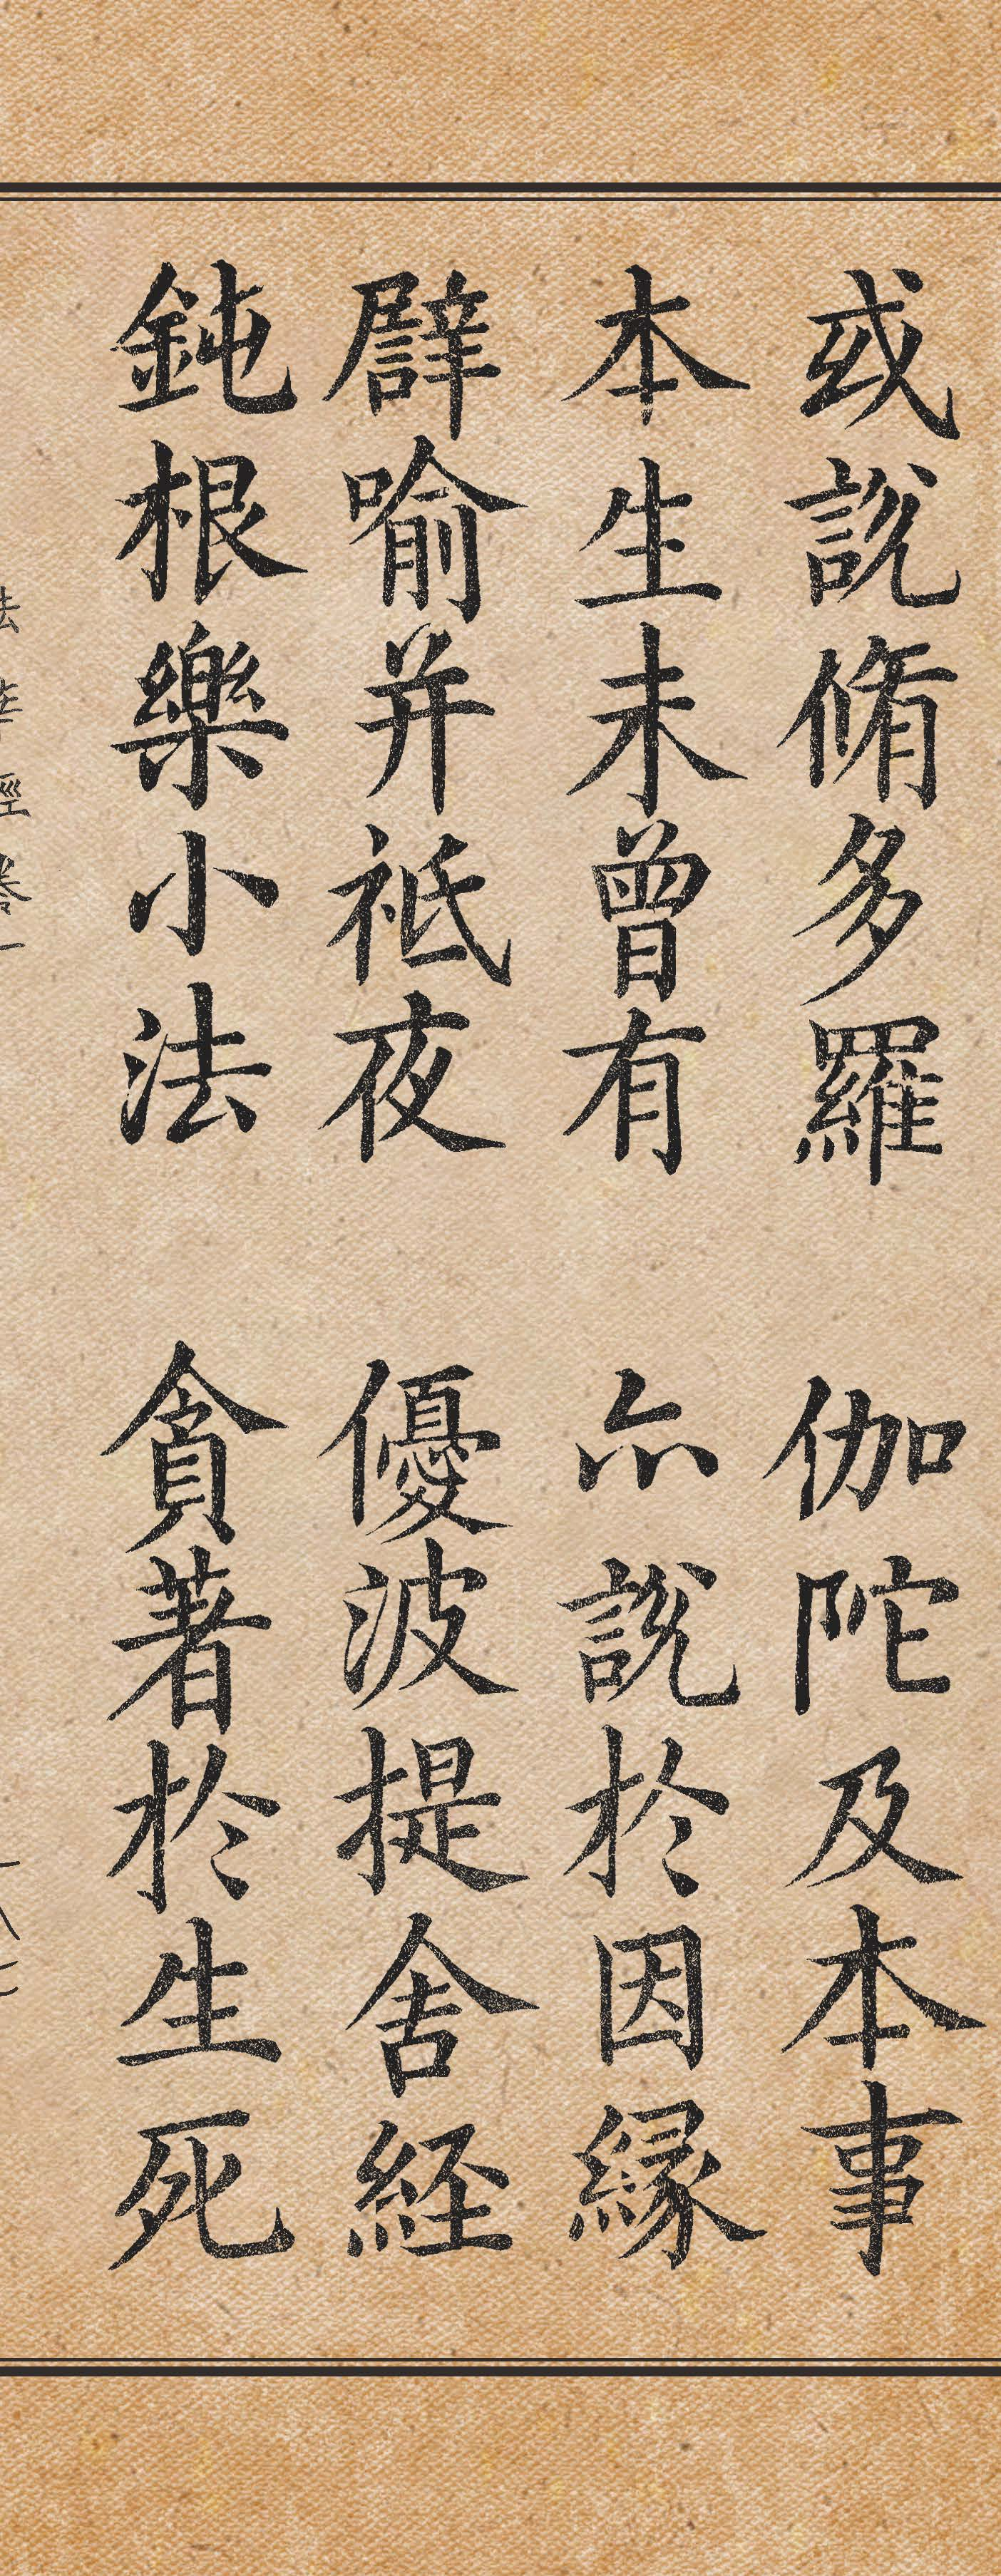 或說脩多羅 伽陀及本事
本生未曾有 亦說於因緣
譬喻并祇夜 優波提舍経
鈍根樂小法 貪著於生死
法華經卷一